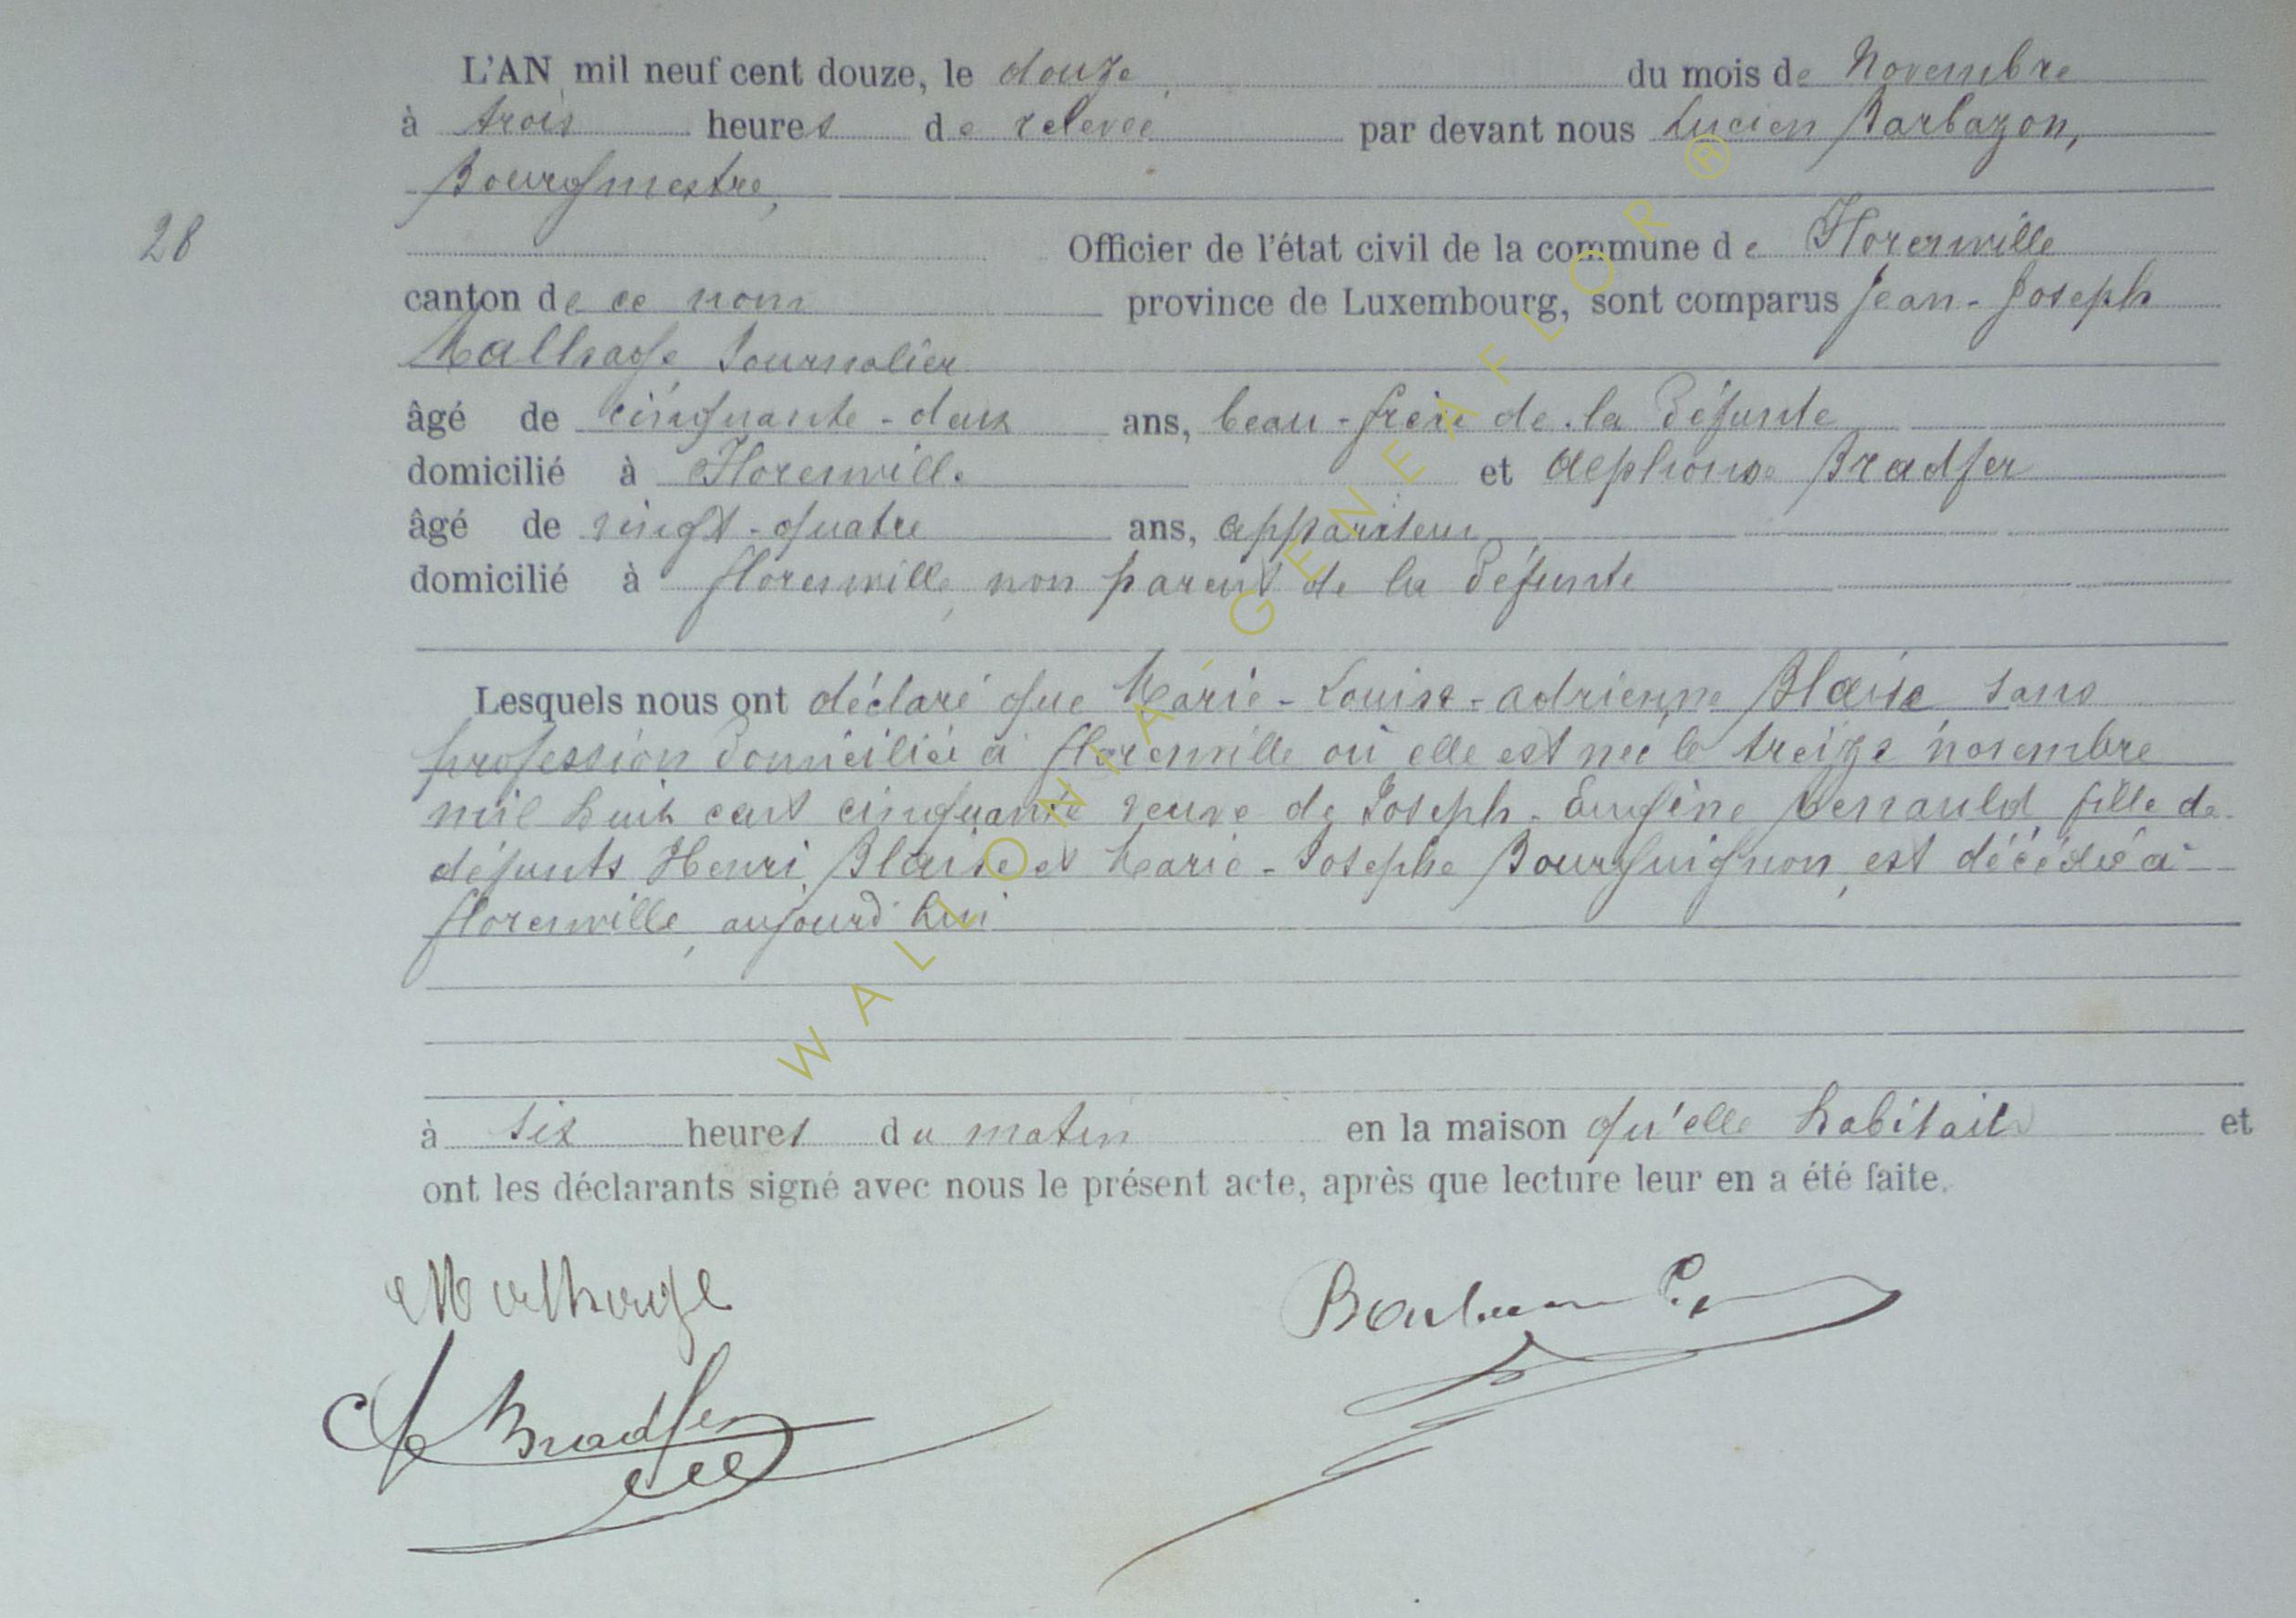 L'AN mil neuf cent douze, le douze du mois de Novembre
à trois heures de relevée par devant nous Lucien Barbazon,
Bourgmestre,
28
Officier de l'état civil de la commune de Florenville
canton de ce nom province de Luxembourg, sont comparus Jean-Joseph
Malhage Journalier
âgé de cinquante-deux ans, beau-frère de la défunte
domicilié à Florenville et Alphonse Bradfer
âgé de vingt-quatre ans, appariteur
domicilié à Florenville, non parent de la défunte
Lesquels nous ont déclaré que Marie-Louise-Adrienne Blaise sans
profession domiciliée à Florenville où elle est née le treize novembre
mil huit cent cinquante veuve de Joseph-Eugène fille de
défunts Henri Blaise et Marie-Josephe Bourguignon, est décédée à
Florenville, aujourd'hui
à six heures du matin en la maison qu'elle habitait et
ont les déclarants signé avec nous le présent acte, après que lecture leur en a été faite.
Malhage
A Bradfer
WALLONIA-GENEAFLOR ®